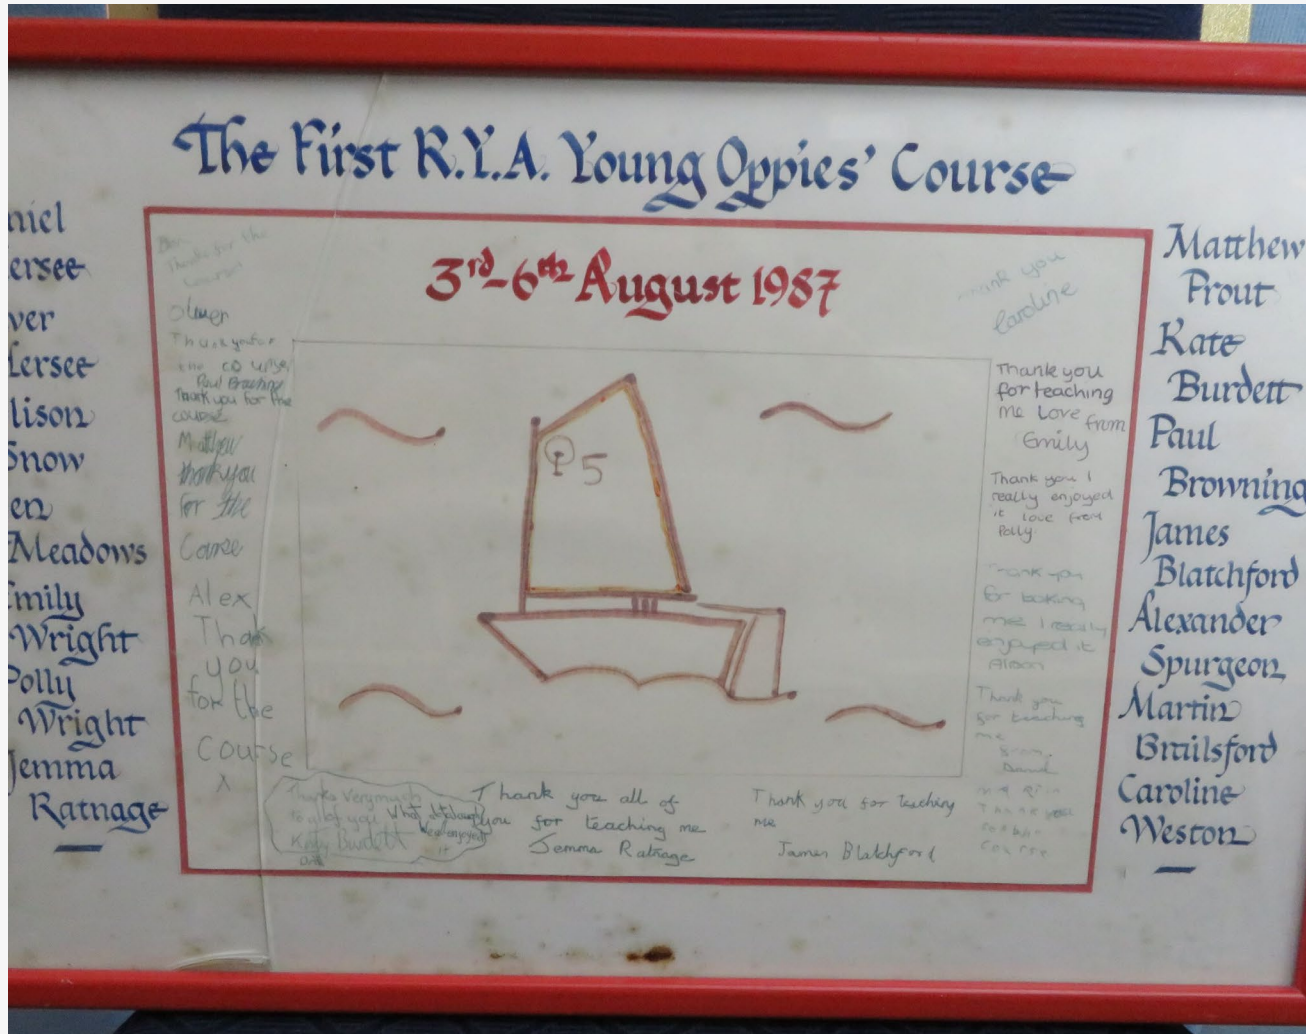 The First R.Y.A. Young Oppies' Course
3rd-6th August 1987
niel
ersee
ver
lersee
lison
Snow
en
Meadows
Emily
Wright
Polly
Wright
Jemma
Ratnage
Ben
Thanks for the
course
Oliver
Thank you for
the course
Paul Browning
Thank you for the
course
Matthew
thank you
for the
Corse
Alex
Thak
you
for the
Course
x
P 5
Thank you
Caroline
Thank you
for teaching
me Love from
Emily
Thank you I
really enjoyed
it love from
Polly
Thank you
for
me I really
enjoyed it
Thank you
for teaching
me
from
Thanks very much
to all of you
Katy Burdett
enjoyed
it
Thank you all of
you for teaching me
Jemma Ratnage
Thank you for teaching
me
James Blatchford
Matthew
Prout
Kate
Burdett
Paul
Browning
James
Blatchford
Alexander
Spurgeon
Martin
Brailsford
Caroline
Weston